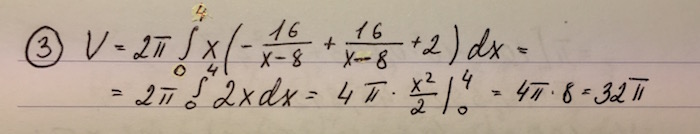 ③ V = 2π ∫₀⁴ x(- 16/(x-8) + 16/(x-8) + 2) dx =
= 2π ∫₀⁴ 2x dx = 4π · x²/2 |₀⁴ = 4π · 8 = 32π